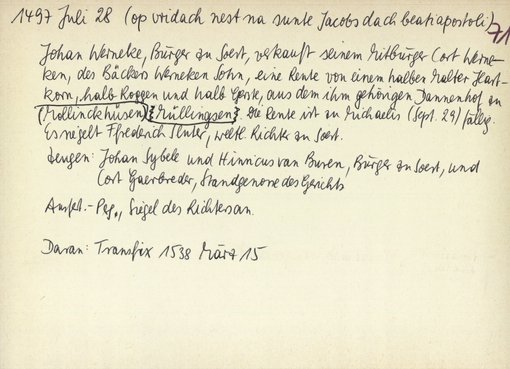 1497 Juli 28 (op vridach nest na sunte Jacobs dach beati apostoli) 71
Johan Werneke, Bürger zu Soest, verkauft seinem Mitbürger Cort Werne-
ken, des Bäckers Werneken Sohn, eine Rente von einem halben Malter Hart-
korn, halb Roggen und halb Gerste, aus dem ihm gehörigen Dannenhof zu
(Mollinckhusen) [Müllingsen]. Die Rente ist zu Michaelis (Sept. 29) fällig.
Es siegelt Ffrederich Sluter, weltl. Richter zu Soest.
Zeugen: Johan Sybele und Hinricus van Buren, Bürger zu Soest, und
Cort Gaerbreder, Standgenosse des Gerichts
Ausf.- Perg., Siegel des Richters an.
Daran: Transfix 1538 März 15